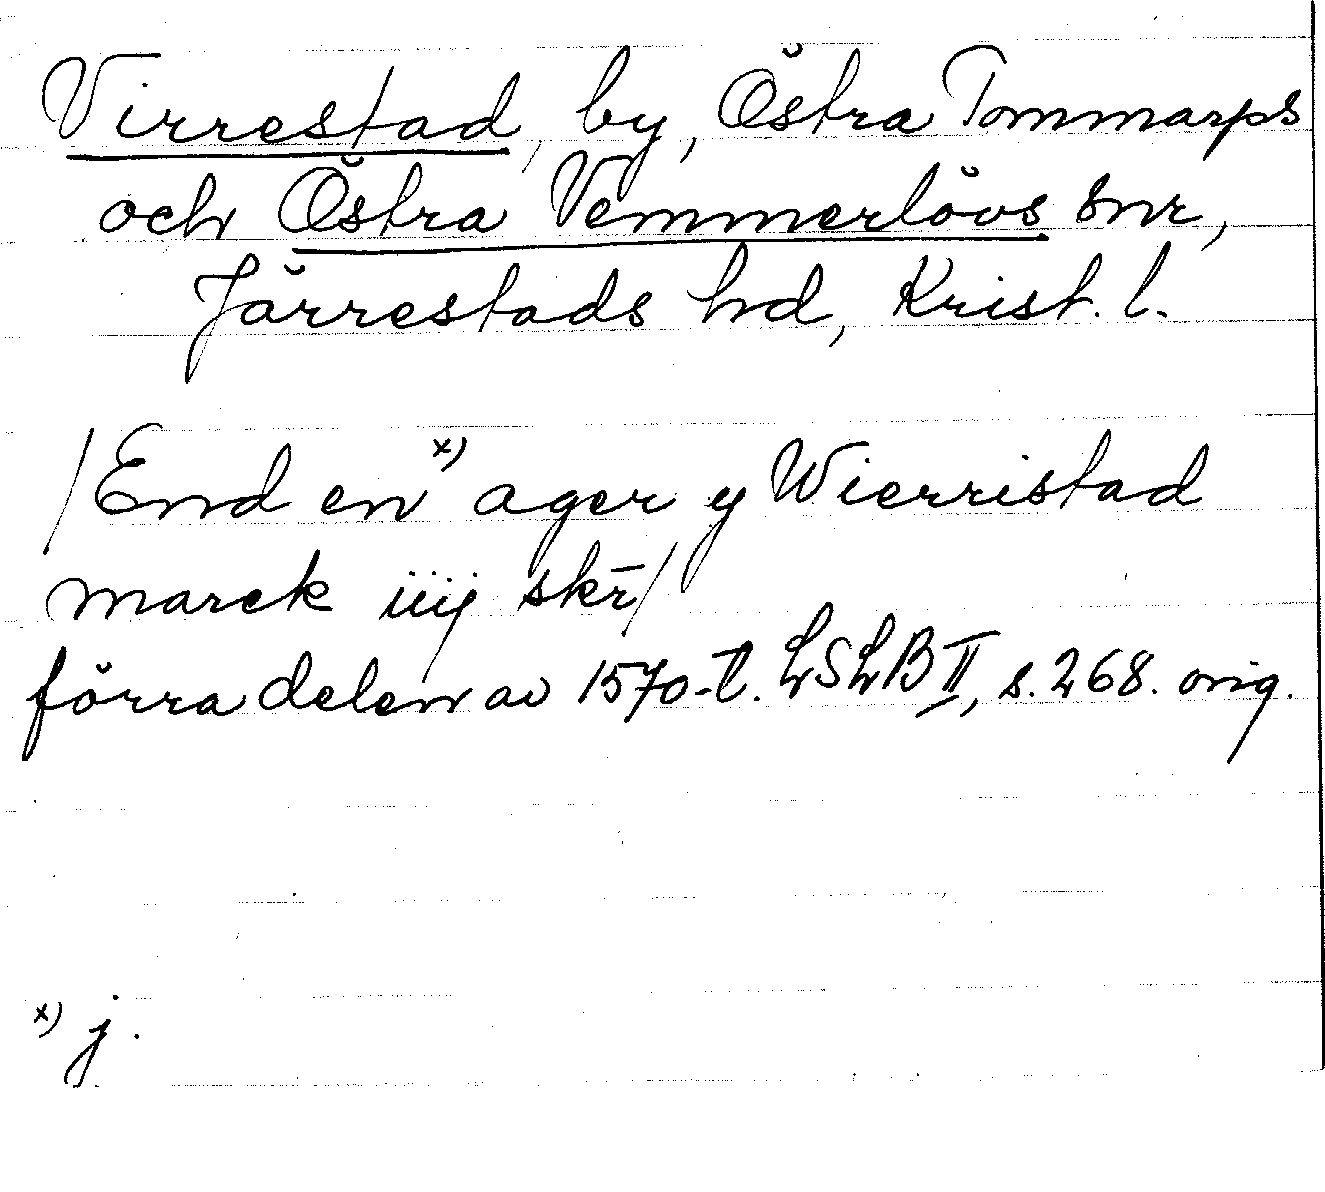 Virrestad, by, Östra Tommarps
och Östra Vemmerlövs snr,
Järrestads hd, Krist. l.
/End en x) ager y Wierristad
marck iiij skr̄/
förra delen av 1570-t. LSLB II, s. 268. orig.
x) j.